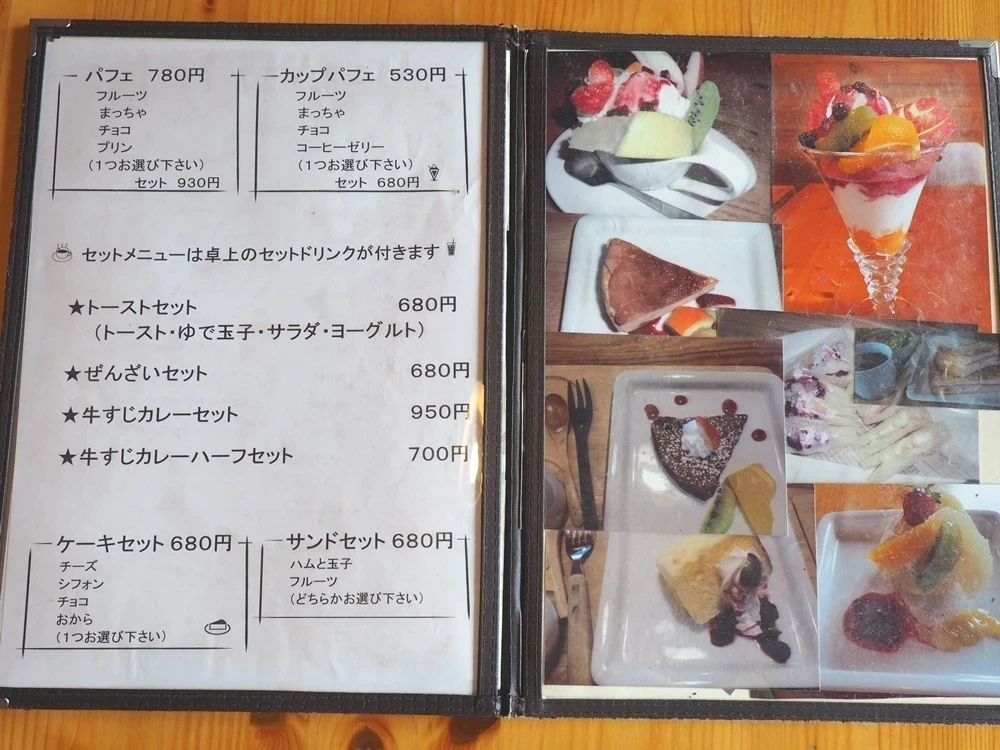 パフェ 780円
フルーツ
まっちゃ
チョコ
プリン
(1つお選び下さい)
セット 930円
カップパフェ 530円
フルーツ
まっちゃ
チョコ
コーヒーゼリー
(1つお選び下さい)
セット 680円
セットメニューは卓上のセットドリンクが付きます
★トーストセット 680円
(トースト・ゆで玉子・サラダ・ヨーグルト)
★ぜんざいセット 680円
★牛すじカレーセット 950円
★牛すじカレーハーフセット 700円
ケーキセット 680円
チーズ
シフォン
チョコ
おから
(1つお選び下さい)
サンドセット 680円
ハムと玉子
フルーツ
(どちらかお選び下さい)